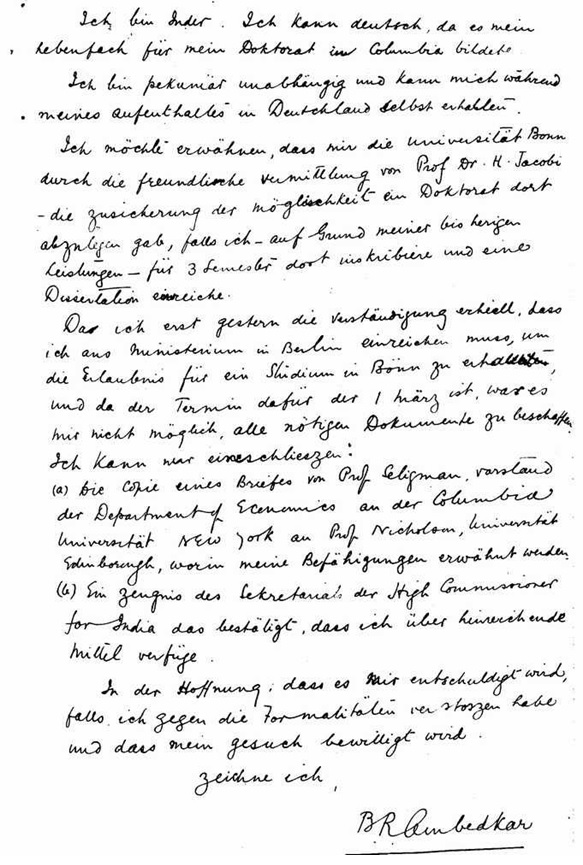 Ich bin Inder. Ich kann deutsch, da es mein
Nebenfach für mein Doktorat in Columbia bildete.
Ich bin pekuniär unabhängig und kann mich während
meines Aufenthaltes in Deutschland selbst erhalten.
Ich möchte erwähnen, dass mir die Universität Bonn
durch die freundliche Vermittlung von Prof Dr. H. Jacobi
- die Zusicherung der möglichkeit ein Doktorat dort
abzulegen gab, falls ich - auf Grund meiner bis herigen
Leistungen - für 3 Semester dort inskribiere und eine
Dissertation einreiche.
Da ich erst gestern die Verständigung erhielt, dass
ich ans Ministerium in Berlin einreichen muss, um
die Erlaubnis für ein Studium in Bonn zu erhalten,
und da der Termin dafür der 1 März ist, war es
mir nicht möglich, alle nötigen Dokumente zu beschaffen.
Ich kann nur einschlieszen:
(a) Die Copie eines Briefes von Prof Seligman, Vorstand
der Department of Economics an der Columbia
Universität New York an Prof Nicholson, Universität
Edinborough, worin meine Befähigungen erwähnt werden.
(b) Ein Zeugnis des Sekretariats der High Commissioner
for India das bestätigt, dass ich über hinreichende
Mittel verfüge.
In der Hoffnung, dass es mir entschuldigt wird,
falls ich gegen die Formalitäten verstoszen habe
und dass mein gesuch bewilligt wird.
zeichne ich,
B R Ambedkar